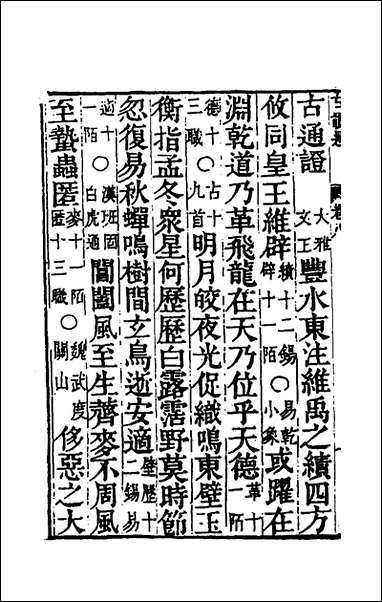 古通證大雅文王豐水東注維禹之績四方
攸同皇王維辟績十二錫辟十一陌○易乾小象或躍在
淵乾道乃革飛龍在天乃位乎天德革十一陌
德十三職○古十九首明月皎夜光促織鳴東壁玉
衡指孟冬衆星何歷歷白露霑野莫時節
忽復易秋蟬鳴樹間玄鳥逝安適壁歷十二錫易
適十一陌○漢班固白虎通閶闔風至生薺麥不周風
至蟄蟲匿麥十一陌匿十三職○魏武度關山侈惡之大